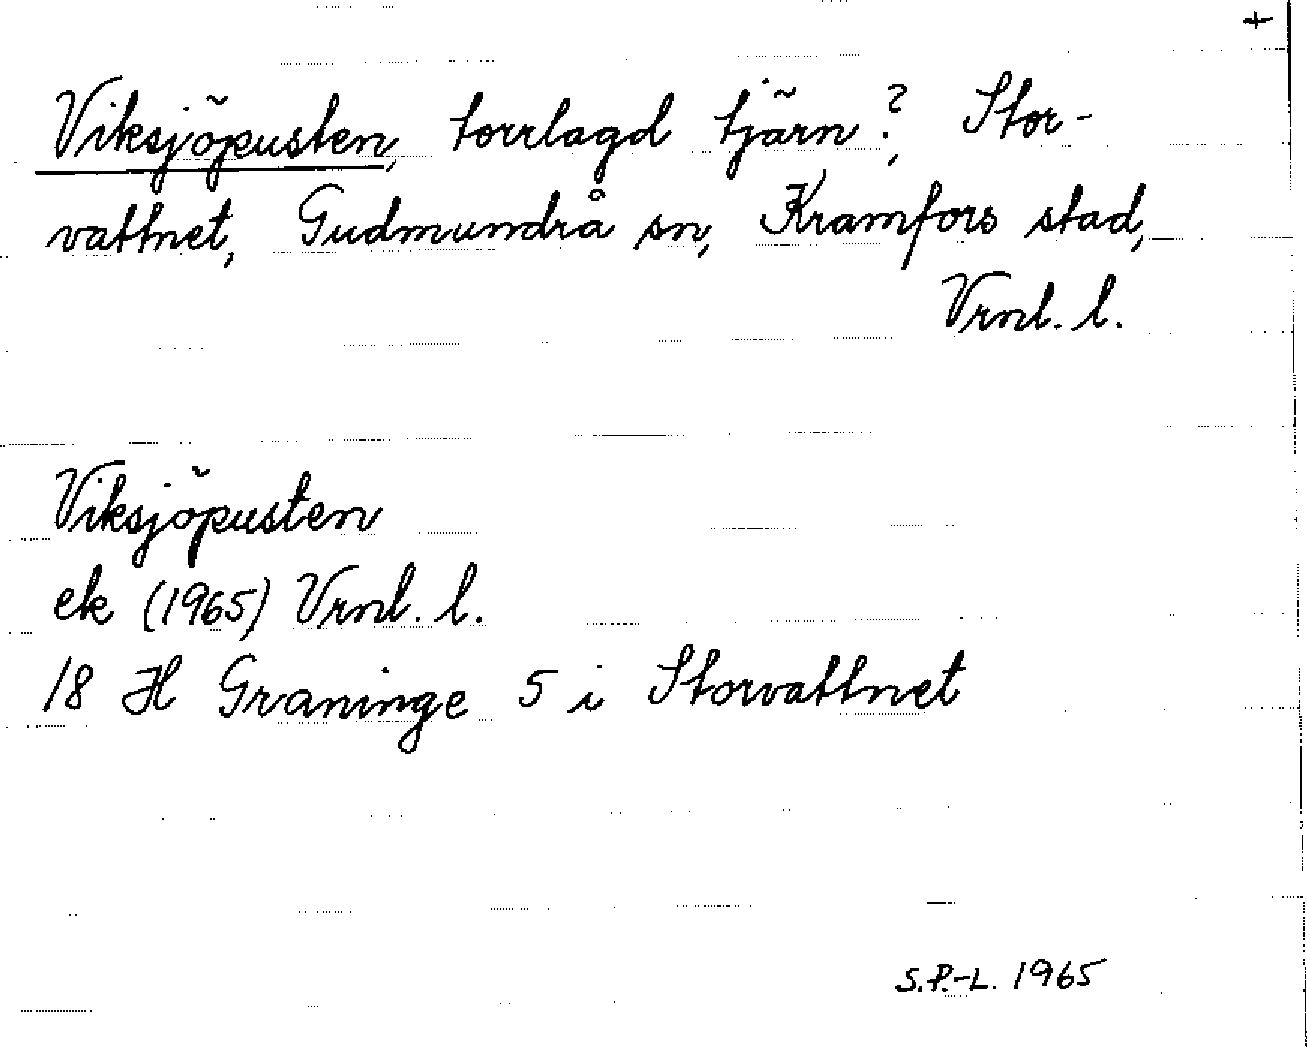 +
Viksjöpusten, torrlagd tjärn?, Stor-
vattnet, Gudmundrå sn, Kramfors stad,
Vrnl. l.
Viksjöpusten
ek (1965) Vrnl. l.
18 H Graninge 5 i Storvattnet
S.P.-L. 1965